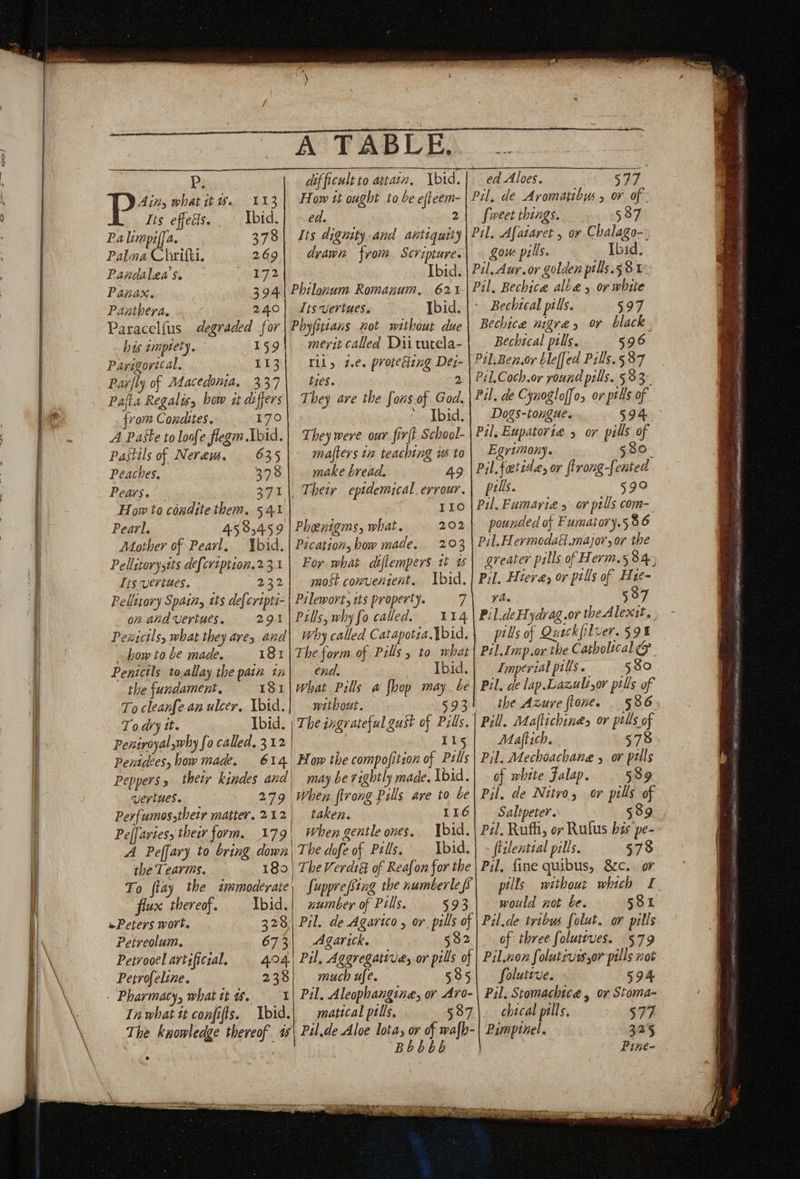 A TABLE.
P.
PAin, what it is. 113
Its effects. Ibid.
Palimpissa. 378
Palma Christi. 269
Pandalea's. 172
Panax. 394
Panthera. 240
Paracelsus degraded for
his impiety. 159
Parigorical. 113
Parsly of Macedonia. 337
Pasta Regalis, how it differs
from Condites. 170
A Paste to loose flegm. Ibid.
Pastils of Nereus. 635
Peaches. 378
Pears. 371
How to condite them. 541
Pearl. 458,459
Mother of Pearl. Ibid.
Pellitory, its description. 231
Its vertues. 232
Pellitory Spain, its descripti-
on and vertues. 291
Penicils, what they are, and
how to be made. 181
Penicils to allay the pain in
the fundament. 181
To cleanse an ulcer. Ibid.
To dry it. Ibid.
Peniroyal, why so called. 312
Penidees, how made. 614
Peppers, their kindes and
vertues. 279
Perfumos, their matter. 212
Pessaries, their form. 179
A Pessary to bring down
the Tearms. 180
To stay the immoderate
flux thereof. Ibid.
Peters wort. 328
Petreolum. 673
Petrooel artificial. 404
Petroseline. 238
Pharmacy, what it is. 1
In what it consists. Ibid.
The knowledge thereof is
difficult to attain. Ibid.
How it ought to be esteem-
ed. 2
Its dignity and antiquity
drawn from Scripture.
Ibid.
Philonum Romanum. 621
Its vertues. Ibid.
Physitians not without due
merit called Dii tutela-
rii, i.e. protecting Dei-
ties. 2
They are the sons of God.
Ibid.
They were our first School-
masters in teaching us to
make bread. 49
Their epidemical errour.
110
Phœnigms, what. 202
Pication, how made. 203
For what distempers it is
most convenient. Ibid.
Pilewort, its property. 7
Pills, why so called. 114
Why called Catapotia. Ibid.
The form of Pills, to what
end. Ibid.
What Pills a shop may be
without. 593
The ingrateful gust of Pills.
115
How the composition of Pills
may be rightly made. Ibid.
When strong Pills are to be
taken. 116
When gentle ones. Ibid.
The dose of Pills. Ibid.
The Verdict of Reason for the
suppressing the numberless
number of Pills. 593
Pil. de Agarico, or pills of
Agarick. 582
Pil. Aggregativa, or pills of
much use. 585
Pil. Aleophangina, or Aro-
matical pills. 587
Pil. de Aloe lota, or of wash-
ed Aloes. 577
Pil. de Aromatibus, or of
sweet things. 587
Pil. Asaiaret, or Chalago-
gow pills. Ibid.
Pil. Aur. or golden pills. 581
Pil. Bechicæ albæ, or white
Bechical pills. 597
Bechicæ nigræ, or black
Bechical pills. 596
Pil. Ben. or blessed Pills. 587
Pil. Coch. or round pills. 583
Pil. de Cynoglosso, or pills of
Dogs-tongue. 594
Pil. Eupatoriæ, or pills of
Egrimony. 580
Pil. fœtidæ, or strong-scented
pills. 590
Pil. Fumariæ, or pills com-
pounded of Fumatory. 586
Pil. Hermodact. major, or the
greater pills of Herm. 584
Pil. Hieræ, or pills of Hie-
ra. 587
Pil. de Hydrag. or the Alexit.
pills of Quickfilver. 591
Pil. Imp. or the Catholical &
Imperial pills. 580
Pil. de lap. Lazuli, or pills of
the Azure stone. 586
Pill. Mastichinæ, or pills of
Mastich. 578
Pil. Mechoachanæ, or pills
of white Jalap. 589
Pil. de Nitro, or pills of
Saltpeter. 589
Pil. Ruffi, or Rufus his pe-
stilential pills. 578
Pil. sine quibus, &c. or
pills without which I
would not be. 581
Pil. de tribus solut. or pills
of three solutives. 579
Pil. non solutivis, or pills not
solutive. 594
Pil. Stomachicæ, or Stoma-
chical pills. 577
Pimpinel. 325
Bbbbb
Pine-